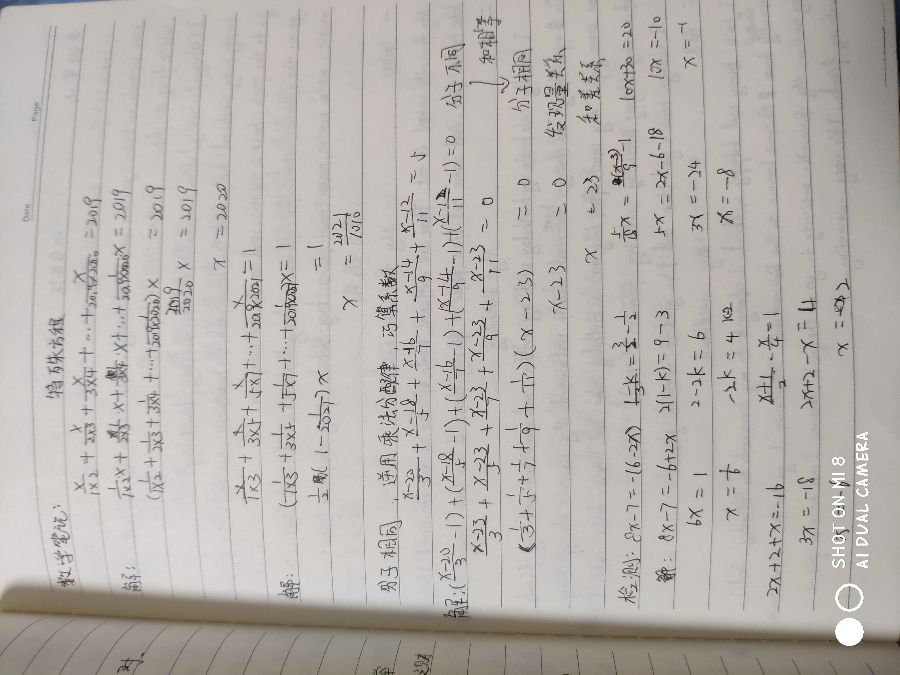 Date
Page
数学笔记:
特殊方程
x/1×2 + x/2×3 + x/3×4 + … + x/2019×2020 = 2019
解: 1/1×2 x + 1/2×3 x + 1/3×4 x + … + 1/2019×2020 x = 2019
(1/1×2 + 1/2×3 + 1/3×4 + … + 1/2019×2020) x = 2019
2019/2020 x = 2019
x = 2020
x/1×3 + x/3×5 + x/5×7 + … + x/2019×2021 = 1
解: (1/1×3 + 1/3×5 + 1/5×7 + … + 1/2019×2021) x = 1
1/2 (1 - 1/2021) x = 1
x = 2021/1010
分子相同, 逆用乘法分配律, 巧算系数
x-20/3 + x-18/5 + x-16/7 + x-14/9 + x-12/11 = 5
解: (x-20/3 -1) + (x-18/5 -1) + (x-16/7 -1) + (x-14/9 -1) + (x-12/11 -1) = 0 分子不同
x-23/3 + x-23/5 + x-23/7 + x-23/9 + x-23/11 = 0 ↓和相等
(1/3 + 1/5 + 1/7 + 1/9 + 1/11) (x-23) = 0 分子相同
x-23 = 0 发现量关系
x = 23 和差关系
检测: 8x-7=-(6-2x) 1-k/3 = 3/2 - 1/2 5/9 x = 2(x-3)/9 - 1 10x+30=20
解: 8x-7=-6+2x 2(1-k)=9-3 5x=2x-6-18 10x=-10
6x=1 2-2k=6 3x=-24 x=-1
x=1/6 -2k=4 k=-2 x=-8
2x+2+x=-16 x+1/2 - x/4 = 1
3x=-18 2x+2-x=4
x=2
SHOT ON MI 8
AI DUAL CAMERA